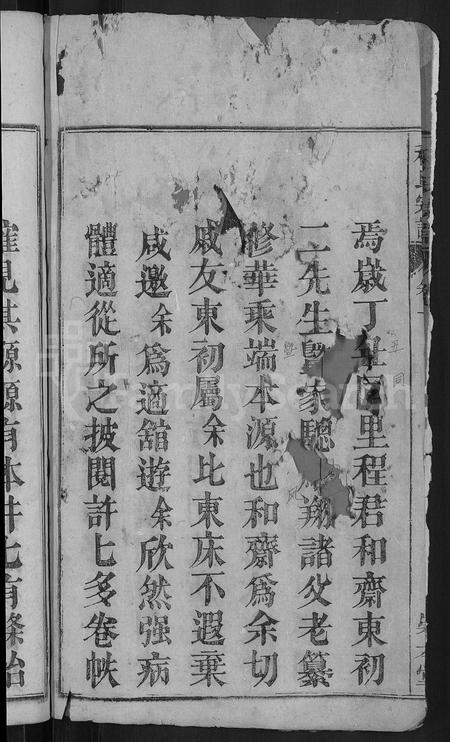 焉歲丁里程君和齋東初
二先生暨家驄翔諸父老纂
修華乘端本源也和齋爲余切
戚友東初屬余比東床不遐棄
咸邀余爲適舘遊余欣然强病
體適從所之披閱許七多卷帙
其源源有本井七有條
暨
五 同
FamilySearch